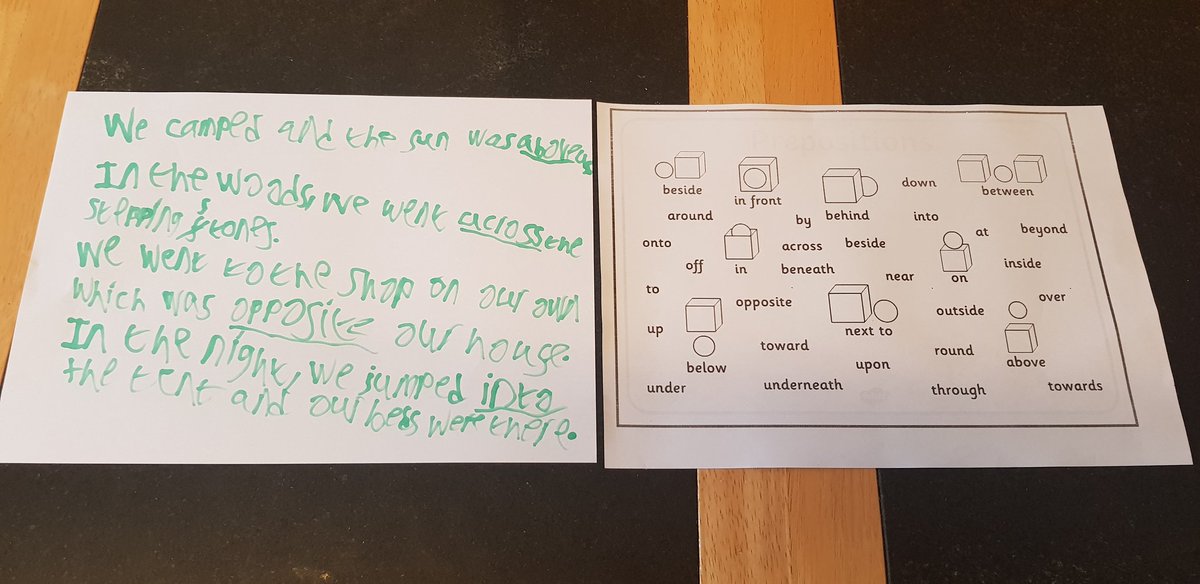 We camped and the sun was above us
In the woods, we went across the
stepping stones.
We went to the shop on our own
which was opposite our house.
In the night, we jumped into
the tent and our beds were there.
Prepositions
beside
in front
behind
down
between
around
by
into
onto
across
beside
at
beyond
off
in
beneath
near
on
inside
to
opposite
next to
outside
over
up
toward
round
above
below
upon
under
underneath
through
towards